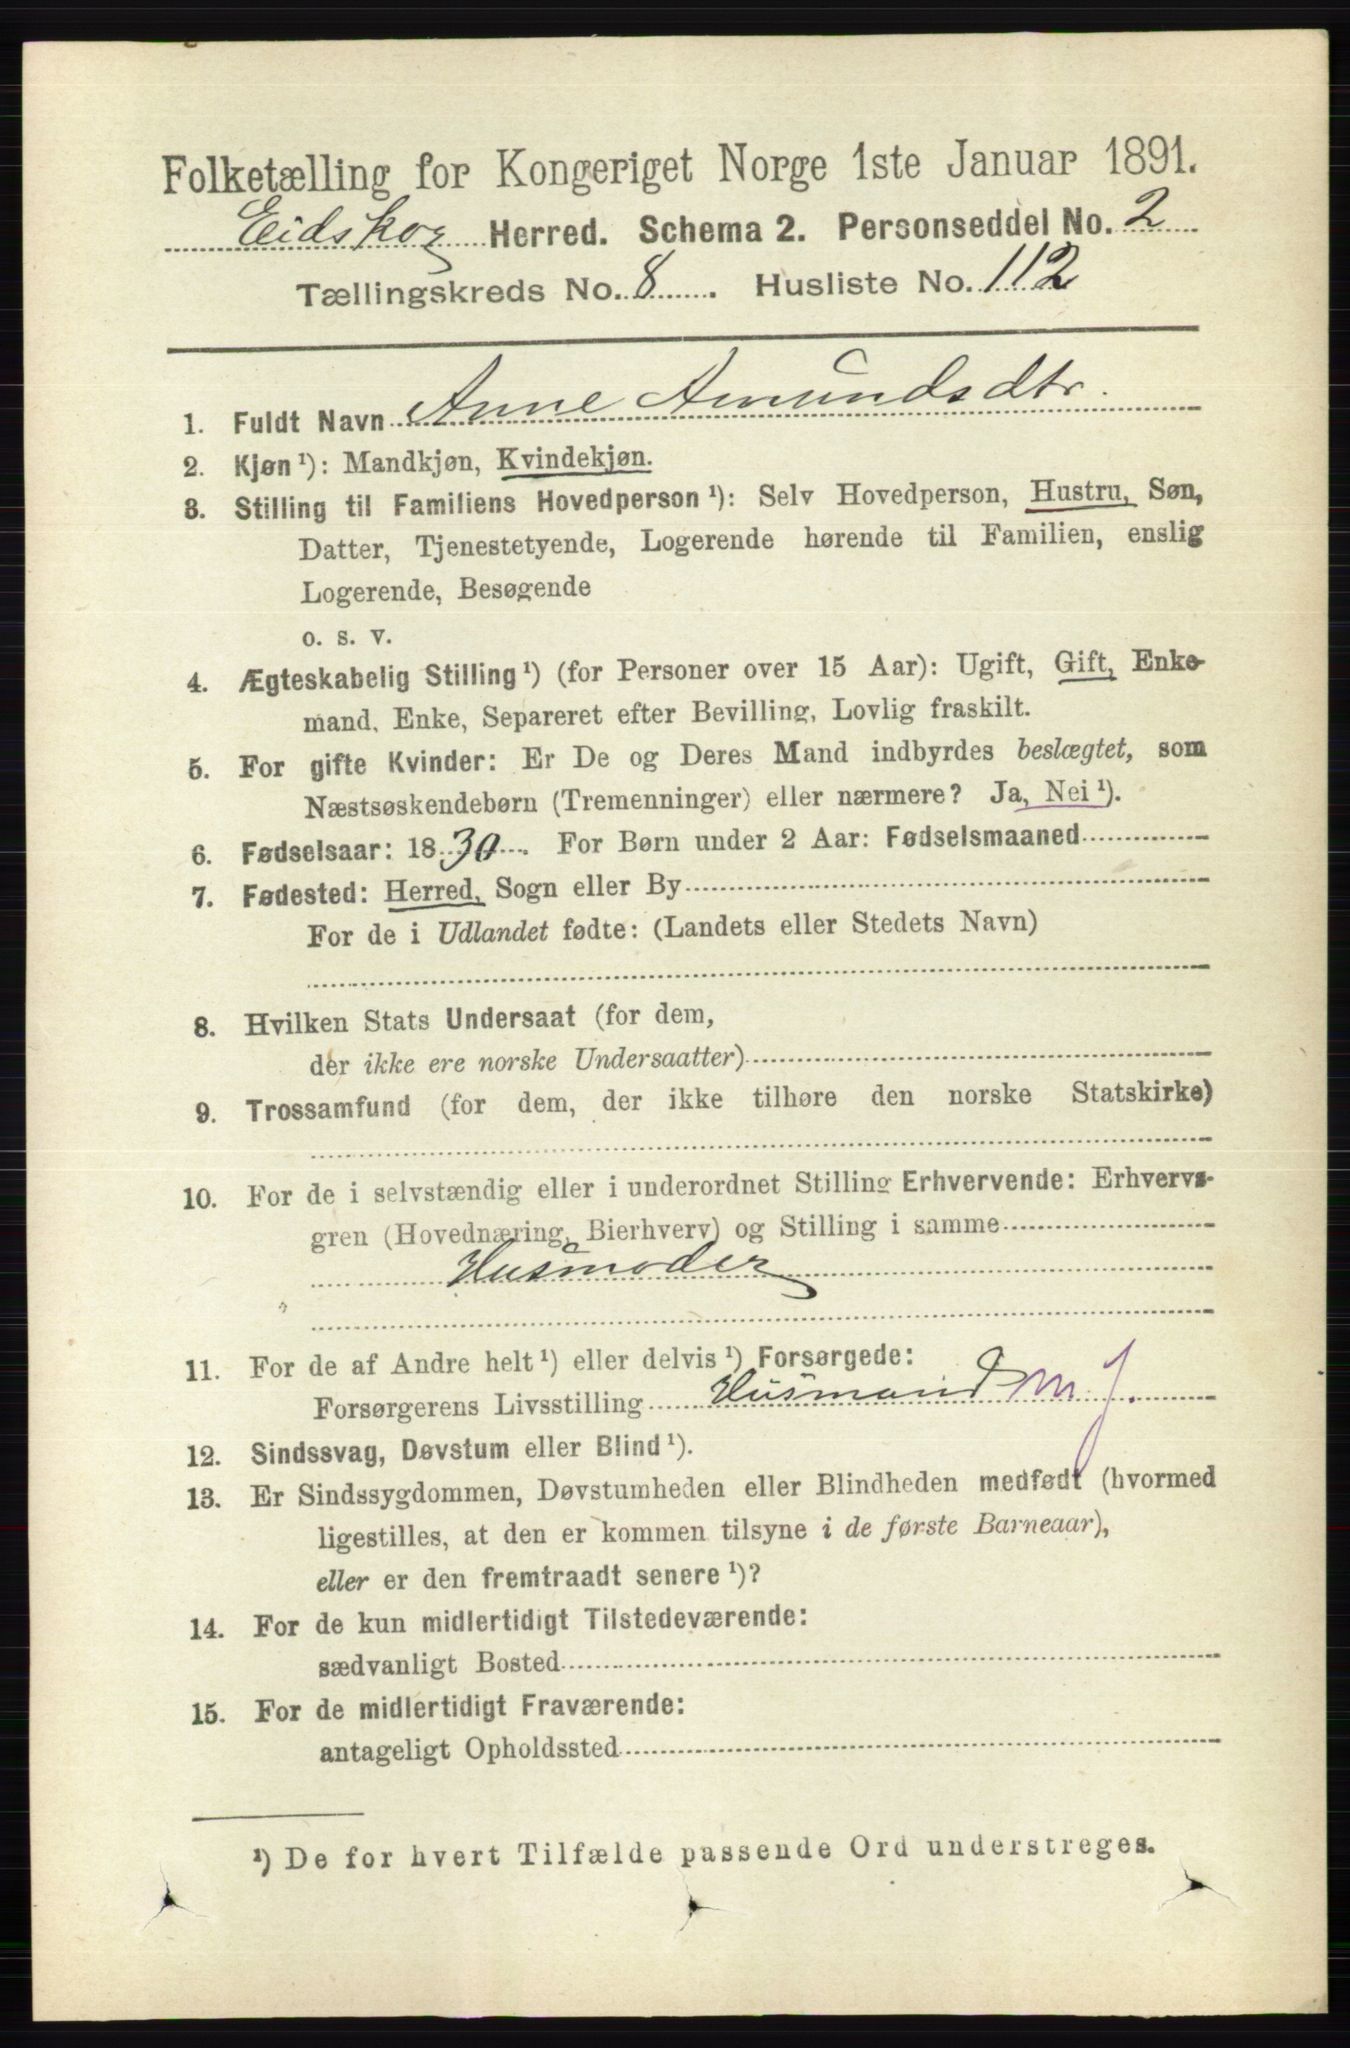 Folketælling for Kongeriget Norge 1ste Januar 1891.
Eidskog Herred. Schema 2. Personseddel No. 2
Tællingskreds No. 8. Husliste No. 112
1. Fuldt Navn Anne Amundsdtr.
2. Kjøn ¹): Mandkjøn, Kvindekjøn.
3. Stilling til Familiens Hovedperson ¹): Selv Hovedperson, Hustru, Søn,
Datter, Tjenestetyende, Logerende hørende til Familien, enslig
Logerende, Besøgende
o. s. v.
4. Ægteskabelig Stilling ¹) (for Personer over 15 Aar): Ugift, Gift, Enke-
mand, Enke, Separeret efter Bevilling, Lovlig fraskilt.
5. For gifte Kvinder: Er De og Deres Mand indbyrdes beslægtet, som
Næstsøskendebørn (Tremenninger) eller nærmere? Ja, Nei ¹).
6. Fødselsaar: 1830. For Børn under 2 Aar: Fødselsmaaned
7. Fødested: Herred, Sogn eller By
For de i Udlandet fødte: (Landets eller Stedets Navn)
8. Hvilken Stats Undersaat (for dem,
der ikke ere norske Undersaatter)
9. Trossamfund (for dem, der ikke tilhøre den norske Statskirke)
10. For de i selvstændig eller i underordnet Stilling Erhvervende: Erhvervs-
gren (Hovednæring, Bierhverv) og Stilling i samme
Husmoder
11. For de af Andre helt ¹) eller delvis ¹) Forsørgede:
Forsørgerens Livsstilling Husmand m. J.
12. Sindssvag, Døvstum eller Blind ¹).
13. Er Sindssygdommen, Døvstumheden eller Blindheden medfødt (hvormed
ligestilles, at den er kommen tilsyne i de første Barneaar),
eller er den fremtraadt senere ¹)?
14. For de kun midlertidigt Tilstedeværende:
sædvanligt Bosted
15. For de midlertidigt Fraværende:
antageligt Opholdssted
¹) De for hvert Tilfælde passende Ord understreges.